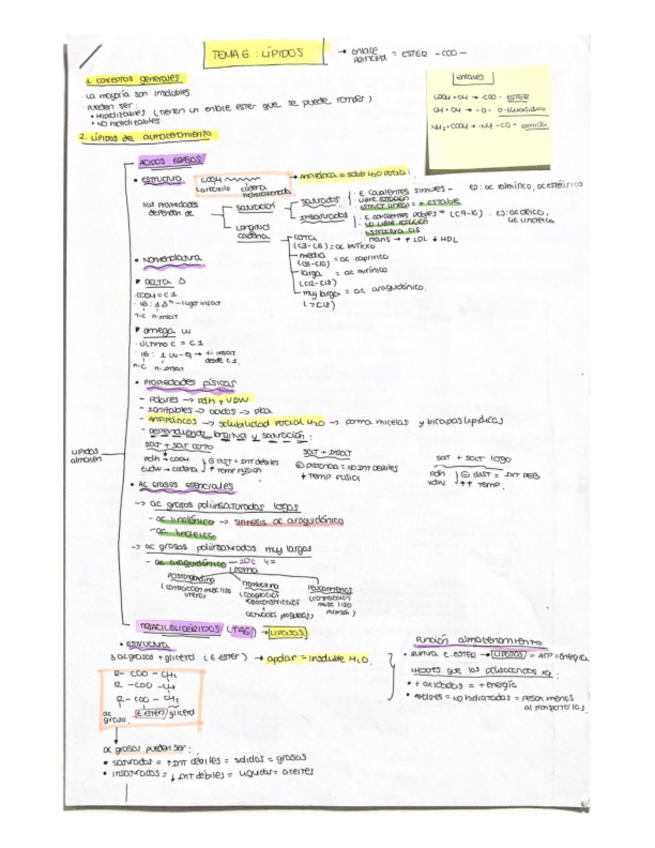 TEMA 6: LÍPIDOS → enlace principal = ESTER -COO-
1. conceptos generales
· La mayoría son insolubles
· Pueden ser:
• Hidrolizables (tienen un enlace ester que se puede romper)
• NO hidrolizables
enlaces
COOH + OH → -COO- ESTER
OH + OH → -O-
NH2 + COOH → -NH-CO- amida
2. LÍPIDOS DE almacenamiento
ÁCIDOS GRASOS
• estructura
COOH
carboxilo cadena hidrocarbonada
→ Anfipática = solub H2O Parcial
sus propiedades dependen de
saturación
saturados
· E covalentes simples - ej: ac palmítico, ac esteárico
· Libre rotación
· estruct lineal = + estable
insaturados
· E covalentes dobles (C9-10) ej: ac oleico, ac linoleico
· NO libre rotación
· estructura cis
· trans → ↑ LDL ↓ HDL
Longitud cadena
corta = ac butírico
media
(C8-C10) = ac caprílico
larga = ac mirístico
(C12-C18)
muy larga = ac araquidónico
(>C18)
• Nomenclatura
DELTA Δ
·COOH = C1
omega ω
·ÚLTIMO C = C1
· 16:1 ω-9 →
desde C1
• Propiedades físicas
- Polares → pdh y VDW
- ionizables → ácidos → pka
- Anfipáticos → solubilidad parcial H2O → forma micelas y bicapas lipídicas
- Dependiendo longitud y saturación:
SAT + SAT corto
pdh → COOH
VDW → cadena
↑ Temp fusión
SAT + INSAT
distancia = NO INT DEBILES
↓ Temp fusión
SAT + SAT largo
pdh
VDW
↑↑ Temp.
• Ac grasos esenciales
→ ac grasos poliinsaturados largos
- ac linolénico → síntesis ac araquidónico
- ac linoleico
→ ac grasos poliinsaturados muy largos
- ac araquidónico - 20C 4=
forma
Prostaglandina
(contracción musc liso útero)
Tromboxano
Leucotrienos
(contracción musc liso
Lípidos almacen
TRIACILGLICÉRIDOS (TAG) → LIPOSOL
• estructura
3 ac grasos + glicerol (E ester) → apolar = insoluble H2O.
R - COO - CH2
R - COO - CH
R - COO - CH2
ac graso E ESTER glicerol
ac grasos pueden ser:
• saturados = ↑ INT débiles = sólidos = grasas
• insaturados = ↓ INT débiles = líquidos = aceites
Función almacenamiento
• Ruptura E. ESTER → = ATP = energía
Mejores que los polisacáridos xq:
• + oxidados = + energía
• Apolares = NO hidratados = pesan menos al transportarlos.